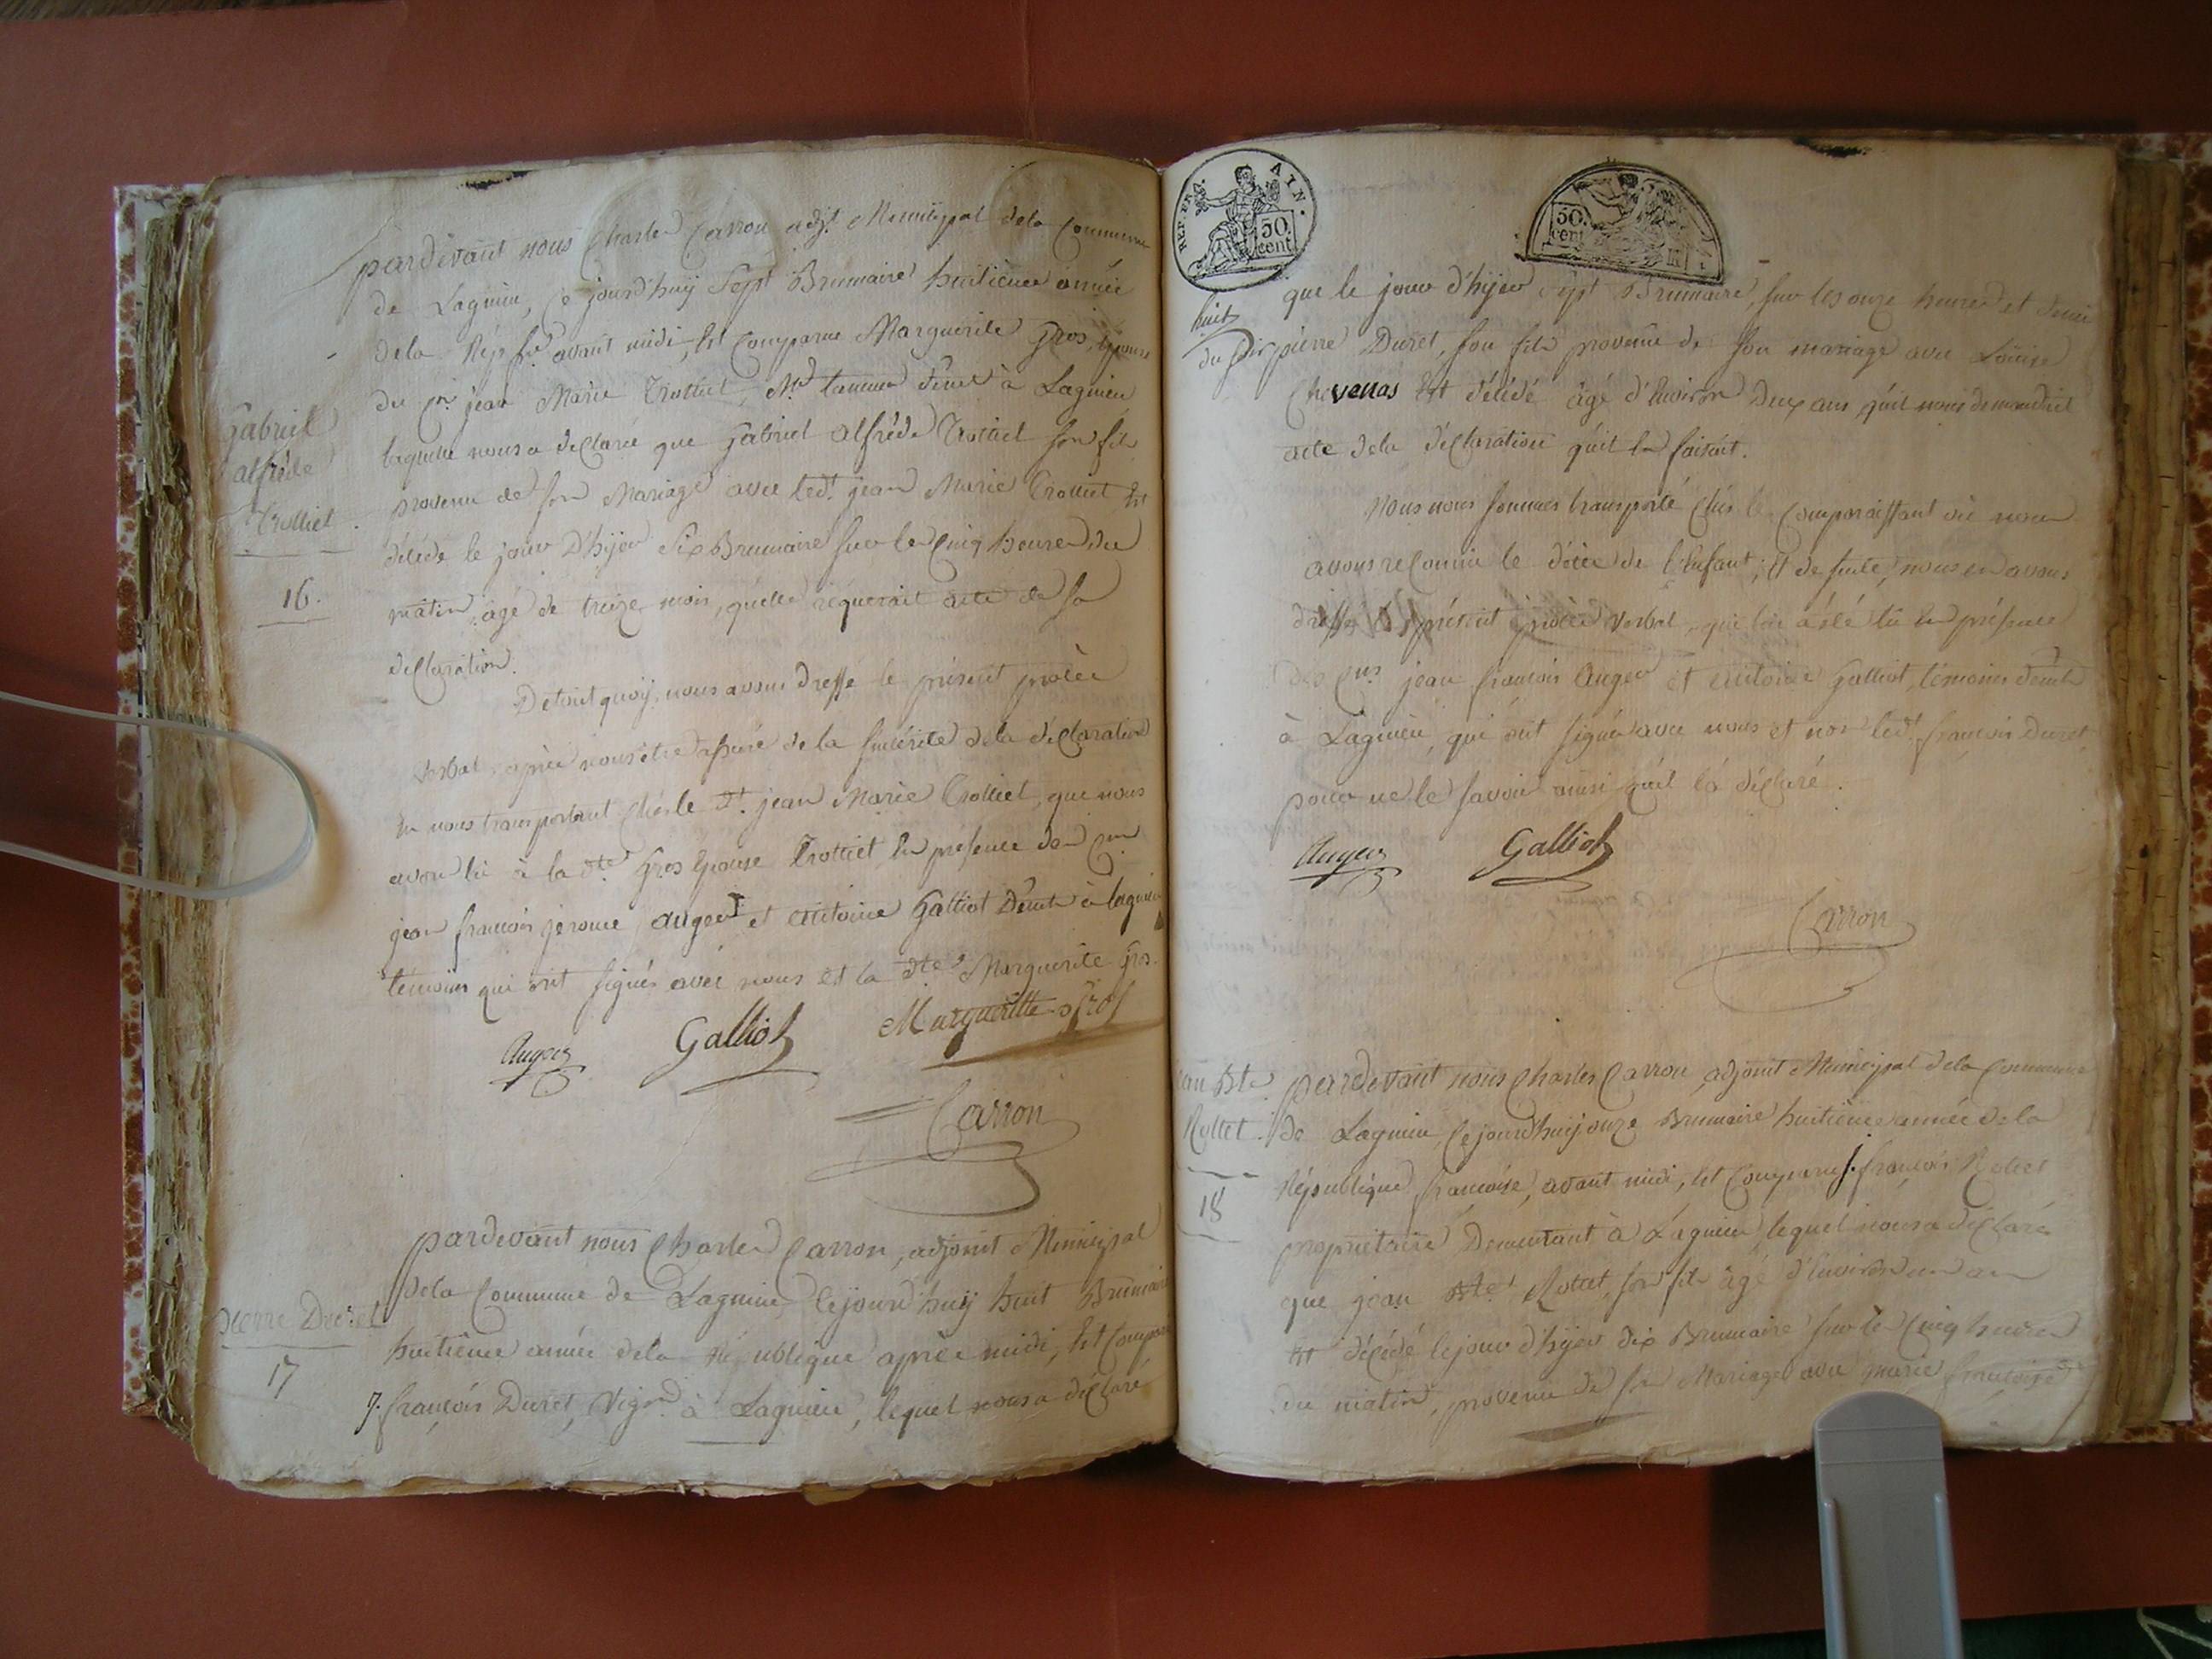 pardevant nous Charles Carron adjt. Municipal de la Commune
de Lagnieu, Ce jourd'huy Sept Brumaire huitième année
dela Rép. fse. avant midi, Est Comparue Marguerite Gros, épouse
du Cn. jean Marie Trolliet, Md. tanneur demt. à Lagnieu
laquelle nous a declaré que Gabriel alfrède Trolliet son fils
provenu de son Mariage avec ledt. jean Marie Trolliet Est
décédé le jour D'hyer Six Brumaire sur les Cinq heures du
matin, agé de treize mois, quelle requerait acte de sa
declaration.
Gabriel
alfrède
Trolliet
16.
De tout quoy, nous avons dressé le présent procès
verbal, après nous être assuré de la sincérité dela déclaration
En nous transportant chés le dt. jean Marie Trolliet, que nous
avons lû à la dte. Gros Epouse Trolliet En présence des Cens
jean françois jerome auger et antoine Galliot Demts. à lagnieu
témoins qui ont signés avec nous et la dte. Marguerite Gros.
Auger Galliot Margueritte Gros
Carron
pardevant nous Charles Carron, adjoint Municipal
dela Commune de Lagnieu, Cejourd'huy huit Brumaire
huitième année dela République après midi, Est Comparu
j. françois Duret, Vign. à Lagnieu, lequel nous a déclaré
pierre Duret
17
REP. FRA. AIN.
50. cent
50. cent
que le jour d'hyer sept Brumaire, sur les onze heures et demi
huit
du soir pierre Duret, son fils provenû de son mariage avec Louise
Chevenas Est décédé âgé d'Environ Deux ans, qu'il nous demandait
acte dela déclaration qu'il En faisait.
Nous nous sommes transporté chés le Comparaissant où nous
avons reConnu le décès de l'Enfant; Et de suite, nous en avons
dressé le présent procès verbal, qui lui a été lû En présence
des Cns. jean françois Auger et antoine Galliot, témoins demts.
à Lagnieu, qui ont signés avec nous et non ledt. françois Duret
pour ne le savoir ainsi qu'il l'a déclaré.
Auger Galliot
Carron
jean Bte.
Rollet
18
pardevant nous Charles Carron adjoint Municipal dela Commune
de Lagnieu, Cejourd'huy onze Brumaire huitième année dela
République française, avant midi, Est Comparu j. françois Rollet
propriétaire Demeurant à Lagnieu, lequel nous a déclaré
que jean Bte. Rollet, son fils âgé d'Environ un an
Est décédé le jour d'hyer dix Brumaire sur les Cinq heures
du matin, provenu de son Mariage avec marie françoise